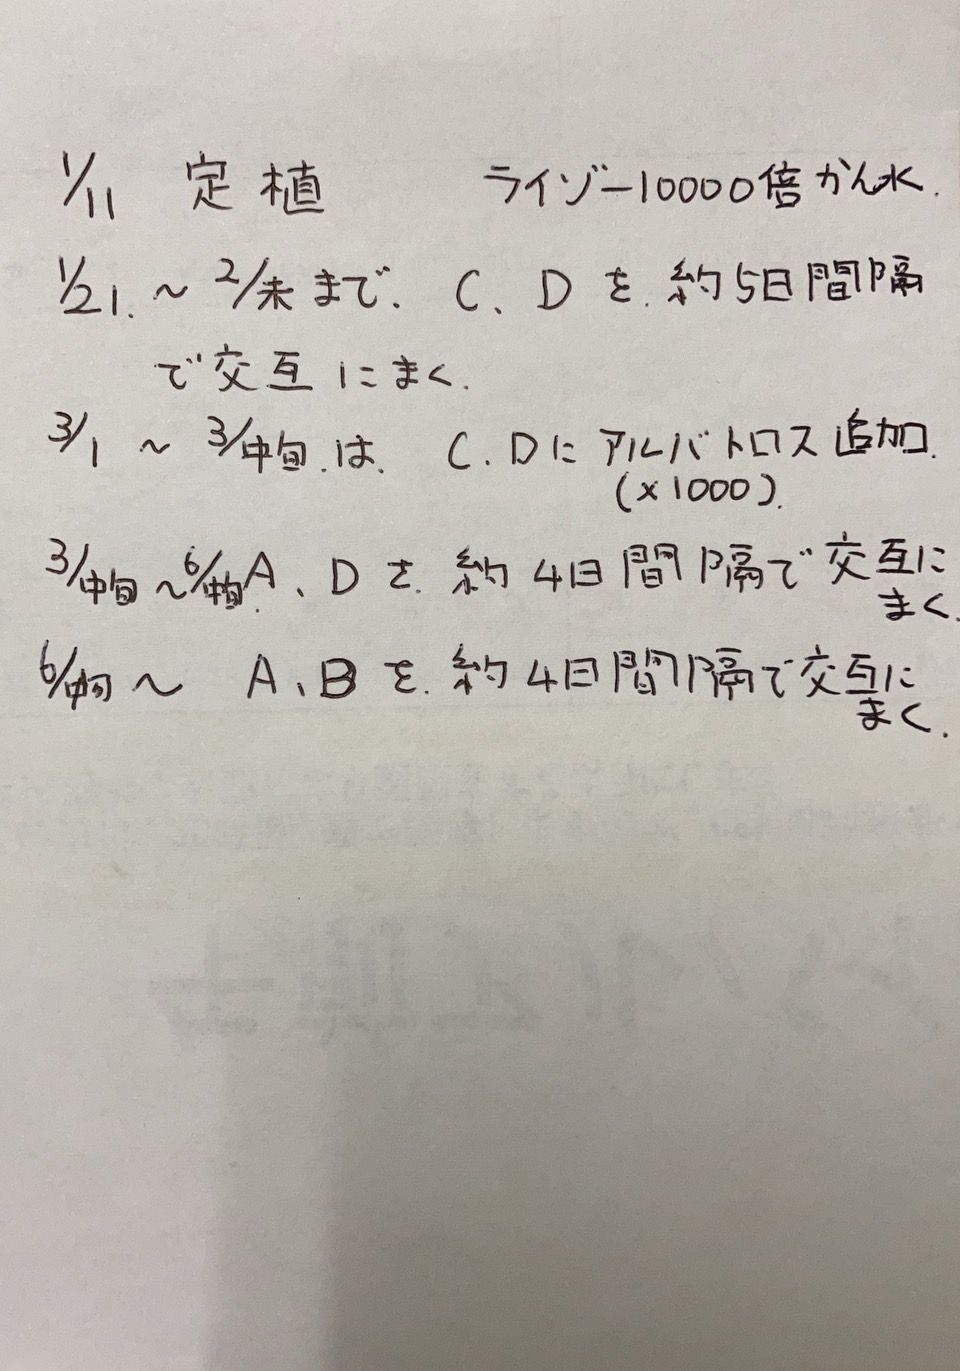 1/11 定植 ライゾー10000倍かん水.
1/21.～2/末まで. C、Dを.約5日間隔
で交互にまく.
3/1 ～ 3/中旬.は. C.Dにアルバトロス追加.
(×1000).
3/中旬～6/中旬.A、Dを.約4日間隔で交互に
まく.
6/中旬～ A、Bを.約4日間隔で交互に
まく.